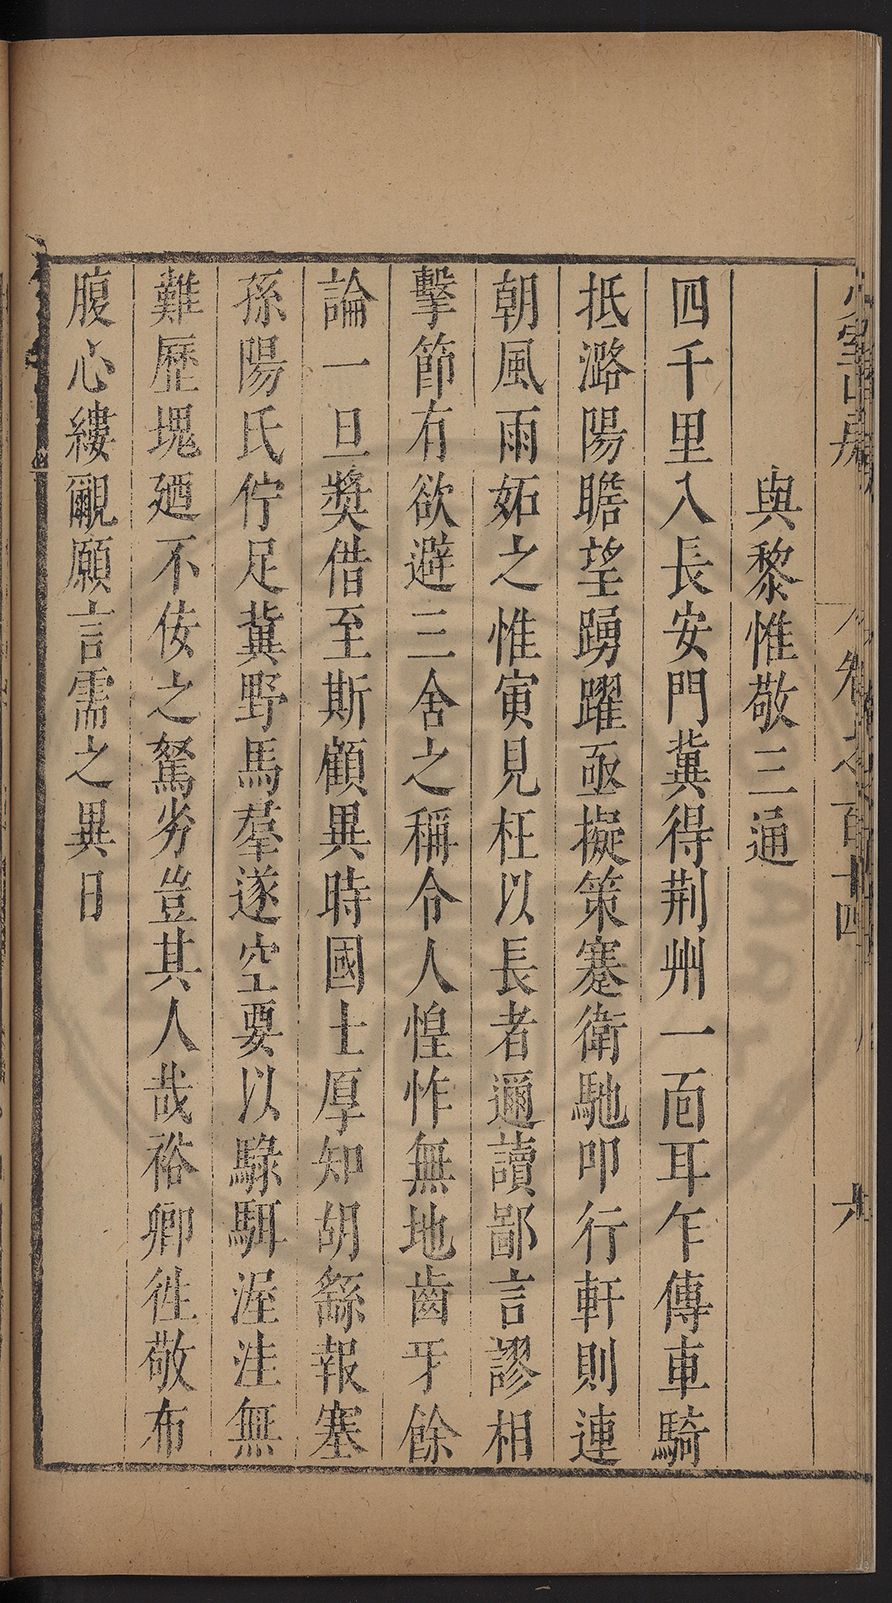 與黎惟敬三通
四千里入長安門冀得荆州一面耳乍傳車騎
抵潞陽瞻望踴躍亟擬策蹇衛馳叩行軒則連
朝風雨妬之惟寅見枉以長者邇讀鄙言謬相
擊節有欲避三舍之稱令人惶怍無地齒牙餘
論一旦奬借至斯顧異時國士厚知胡繇報塞
孫陽氏佇足冀野馬羣遂空要以騄駬渥洼無
難歷塊廼不佞之駑劣豈其人哉裕卿徃敬布
腹心縷覼願言需之異日